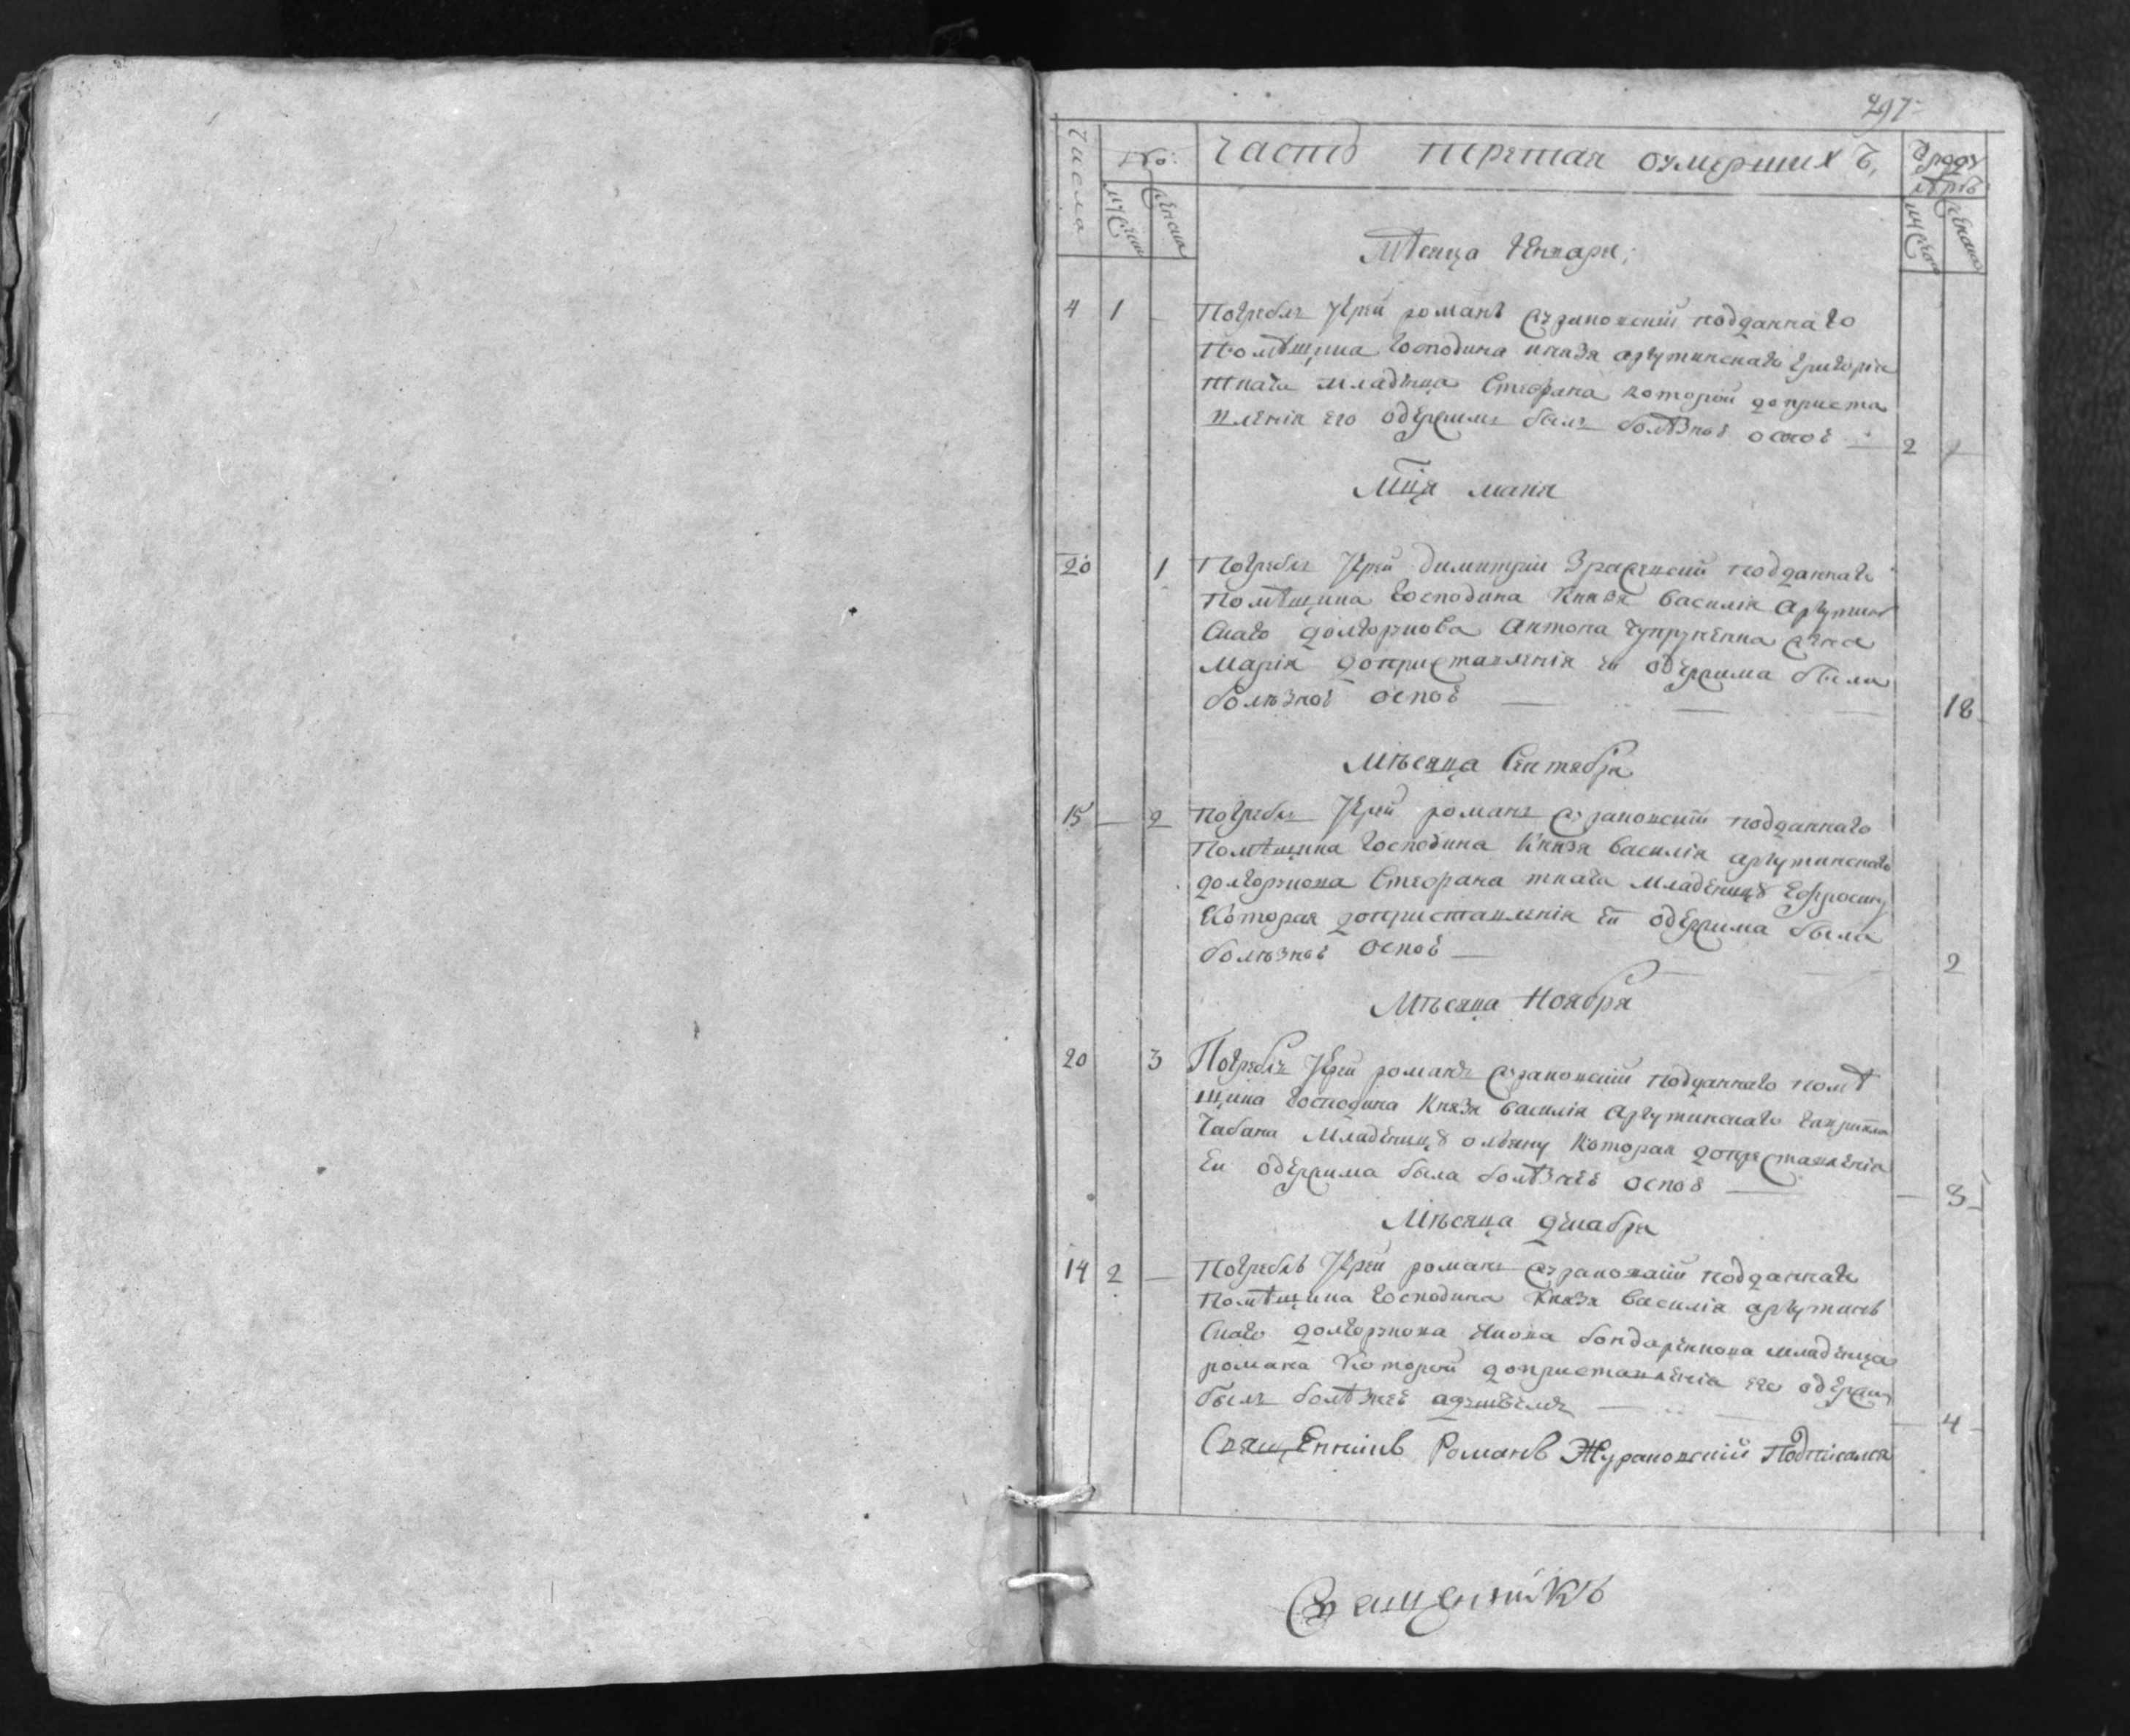 297
Числа
№:
мужеска
женска
Часть третая оумершихъ,
Мѣсяца Генваря;
4 1 — Погреблъ Іерей романъ Жураповскій подданнаго
Помѣщика Господина князя аргутинскаго Григорія
ткача младенца Стефана которой допреста
вленія его одержимъ былъ болѣзнею оспою — 2
Мца маия
20 1 Погреблъ Іерей Димитрій подданнаго
Помѣщика Господина Князя Василія Аргутин
скаго долгорукова Антона Чупрукенка жена
Марія допреставленія ей одержима была
болѣзною оспою — 18
Мѣсяца Сентября
15 — 2 Погреблъ Іерей романъ Жураповскій подданнаго
Помѣщика Господина Князя Василія аргутинскаго
долгорукова Стефана ткача Младеницу Ефросину
Которая допреставленія ей одержима была
болѣзною оспою — 2
Мѣсяца Ноября
20 3 Погреблъ Іерей романъ Жураповскій подданнаго помѣ
щика Господина Князя Василія Аргутинскаго Гавриіла
Чабана Младеницу которая допреставленія
Ей одержима была болѣзнею оспою — 3
Мѣсяца декабря
14 2 — Погреблъ Іерей романъ Жураповскій подданнаго
Помѣщика Господина Князя Василія аргутинъ
скаго долгорукова Якова бондаренкова младенца
романа Которой допреставленія его одержимъ
былъ болѣзнею — 4
Священникъ Романъ Жураповскій Подписался
Священникъ